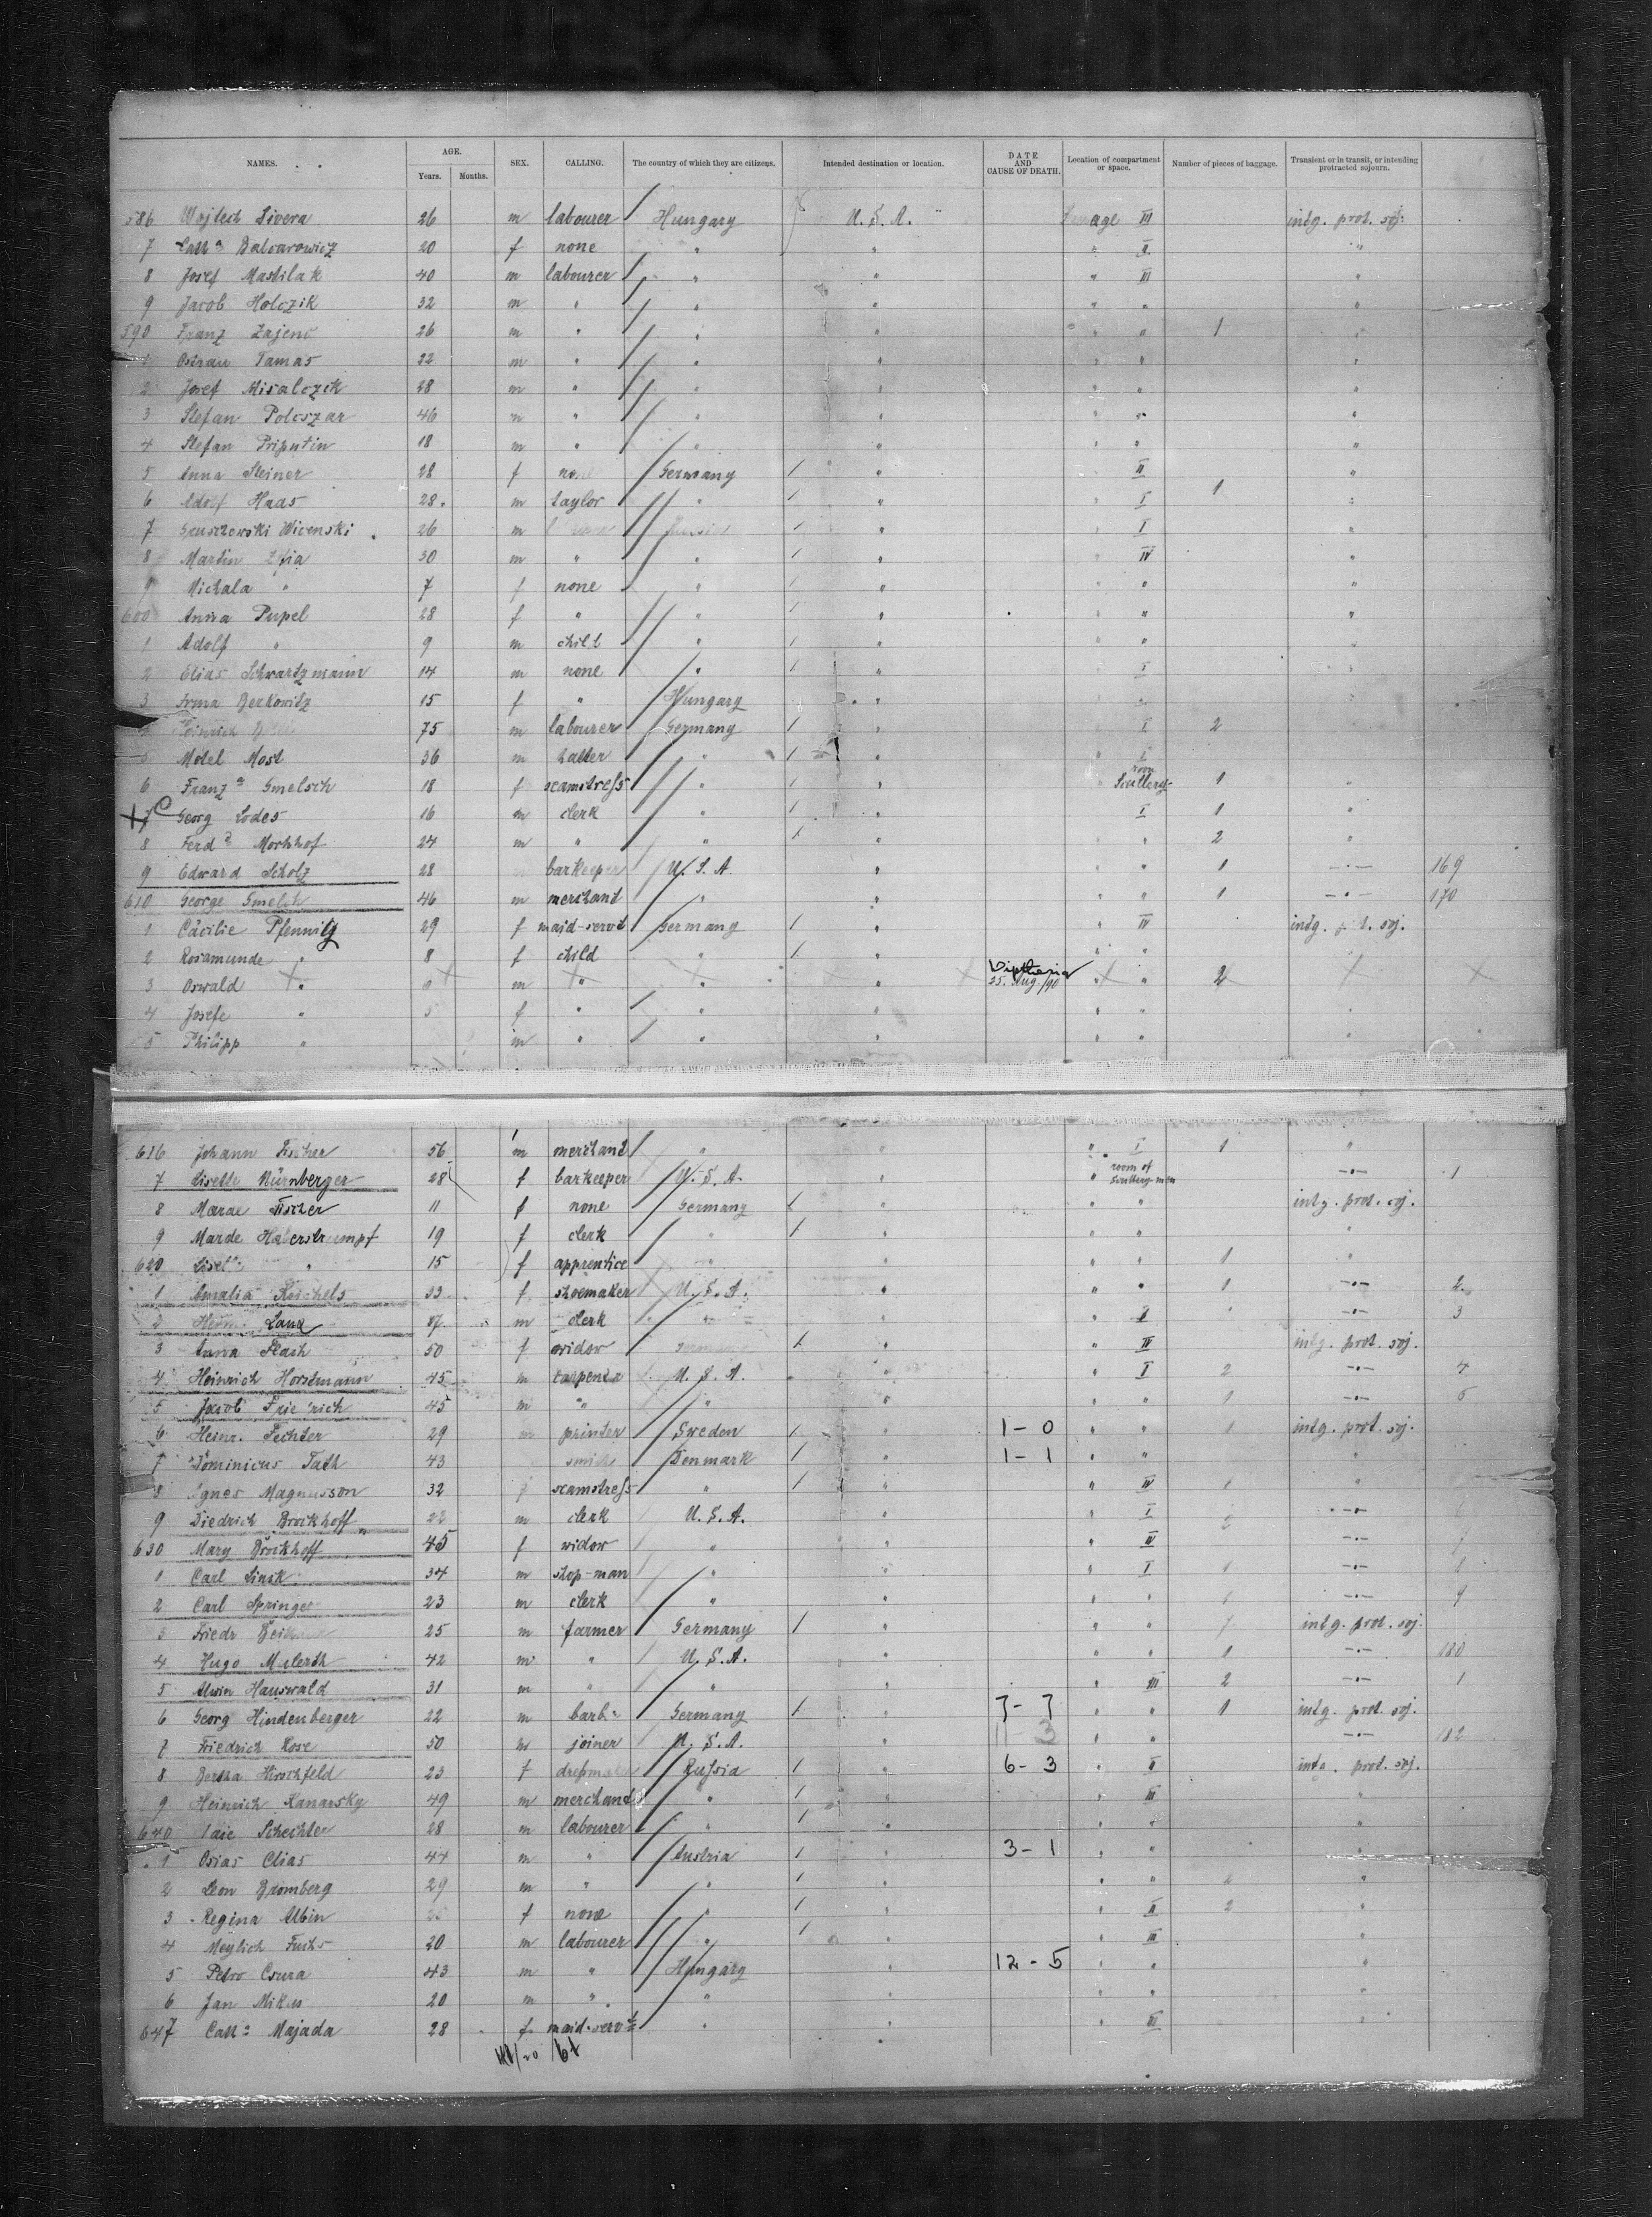 NAMES. AGE. Years. Months. SEX. CALLING. The country of which they are citizens. Intended destination or location. DATE AND CAUSE OF DEATH. Location of compartment or space. Number of pieces of baggage. Transient or in transit, or intending protracted sojourn.
586 26 m labourer Hungary U. S. A. III intg. prot. soj.
7 20 f none " " " II "
8 Josef Mastilak 40 m labourer " " " III "
9 Jacob Holczik 32 m " " " " " "
590 Franz 26 m " " " " " 1 "
1 Tamas 22 m " " " " " "
2 Josef Misalczik 28 m " " " " " "
3 Stefan Polcszar 46 m " " " " " "
4 Stefan Priputin 18 m " " " " " "
5 Anna Steiner 28 f none Germany 1 " " II "
6 Adolf Haas 28 m taylor " 1 " " I 1 "
7 Wicenski 26 m 1 " " I "
8 Martin 30 m " " 1 " " IV "
9 Michala " 7 f none " 1 " " " "
600 Anna Pupel 28 f " " 1 " " " "
1 Adolf " 9 m child " 1 " " " "
2 Elias Schwartzmann 14 m none " 1 " " I "
3 Berkowitz 15 f " Hungary " " "
Heinrich 75 m labourer Germany 1 " " I 2 "
Motel Most 36 m hatter " 1 " " I
6 Franz Gmelsch 18 f seamstress " 1 " " room 1 "
7 Georg Lodes 16 m clerk " 1 " " I 1 "
8 Ferd Morhhof 24 m " " 1 " " " 2 "
9 Edward Scholz 28 barkeeper U. S. A. " " " 1 -·- 169
610 George Gmelch 46 m merchant " " " " 1 -·- 170
1 Cäcilie Pfennig 29 f maid-servt Germany 1 " " IV intg. prot. soj.
2 Rosamunde " 8 f child " 1 " " "
3 Oswald " m " " " Diptheria 25. Aug./90 " " 2
4 Josefe " 5 f " " " " " "
5 Philipp " m " " " " " "
616 Johann Fischer 56 m merchant " " " I 1 "
7 Lisette Nürnberger 28 f barkeeper U. S. A. " " room of -·- 1
8 Fischer 11 f none Germany 1 " " " intg. prot. soj.
9 Haberstrumpf 19 f clerk " 1 " " " "
620 " 15 f apprentice " " " " 1 "
1 Amalia 33 f shoemaker U. S. A. " " " 1 -·- 2
2 m clerk " " " II -·- 3
3 Anna Flash 50 f widow Germany 1 " " IV intg. prot. soj.
4 Heinrich Horstmann 45 m carpenter U. S. A. " " I 2 -·- 4
5 Jacob Friedrich 45 m " " " " " 1 -·- 5
6 Heinr. Fechter 29 m printer Sweden 1 " 1-0 " " 1 intg. prot. soj.
7 Dominicus Tath 43 smith Denmark 1 " 1-1 " " "
8 Agnes Magnusson 32 f seamstress " 1 " " IV 1 "
9 Diedrich Brockhoff 22 m clerk U. S. A. " " I 2 -·- 6
630 Mary Brockhoff 45 f widow " " " IV -·- 7
1 Carl 34 m shop-man " " " I 1 -·- 8
2 Carl Springer 23 m clerk " " " " 1 -·- 9
3 Friedr 25 m farmer Germany 1 " " " intg. prot. soj.
4 Hugo 42 m " U. S. A. " " " 1 -·- 180
5 Alwin Hauswald 31 m " " " " III 2 -·- 1
6 Georg Hindenberger 22 m Germany 1 " 7-7 " " 1 intg. prot. soj.
7 Friedrich Rose 50 m joiner U. S. A. " 11 3 " " -·- 182
8 Bertha Hirschfeld 23 f Russia 1 " 6-3 " II intg. prot. soj.
9 Heinrich Kanarsky 49 m merchant " 1 " " III "
640 Schechter 28 m labourer " 1 " " " "
1 Osias Elias 44 m " Austria 1 " 3-1 " " "
2 Leon Bromberg 29 m " " 1 " " " 2 "
3 Regina Albin 25 f none " 1 " " II 2 "
4 Meylich Fuchs 20 m labourer " 1 " " III "
5 Petro Csura 43 m " Hungary " 12-5 " " "
6 Jan Mikus 20 m " " " " " "
647 Cath Majada 28 f maid-servt " " " III "